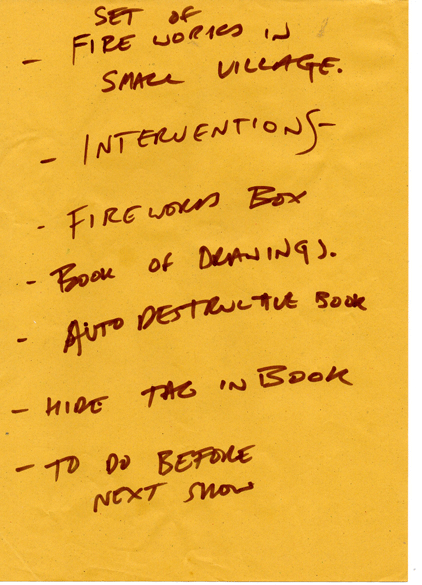 SET OF
- FIRE WORKS IN
SMALL VILLAGE.
- INTERVENTIONS -
- FIREWORKS BOX
- BOOK OF DRAWINGS.
- AUTO DESTRUCTIVE BOOK
- HIDE TAG IN BOOK
- TO DO BEFORE
NEXT SHOW